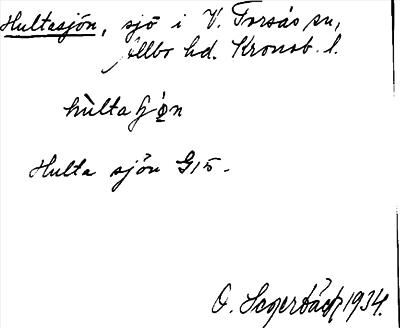 Hultasjön, sjö i V. Torsås sn,
Allbo hd. Kronob. l.
hùltaʃǫ́n
Hulta sjön G15.
O. Sagerbäck 1934.